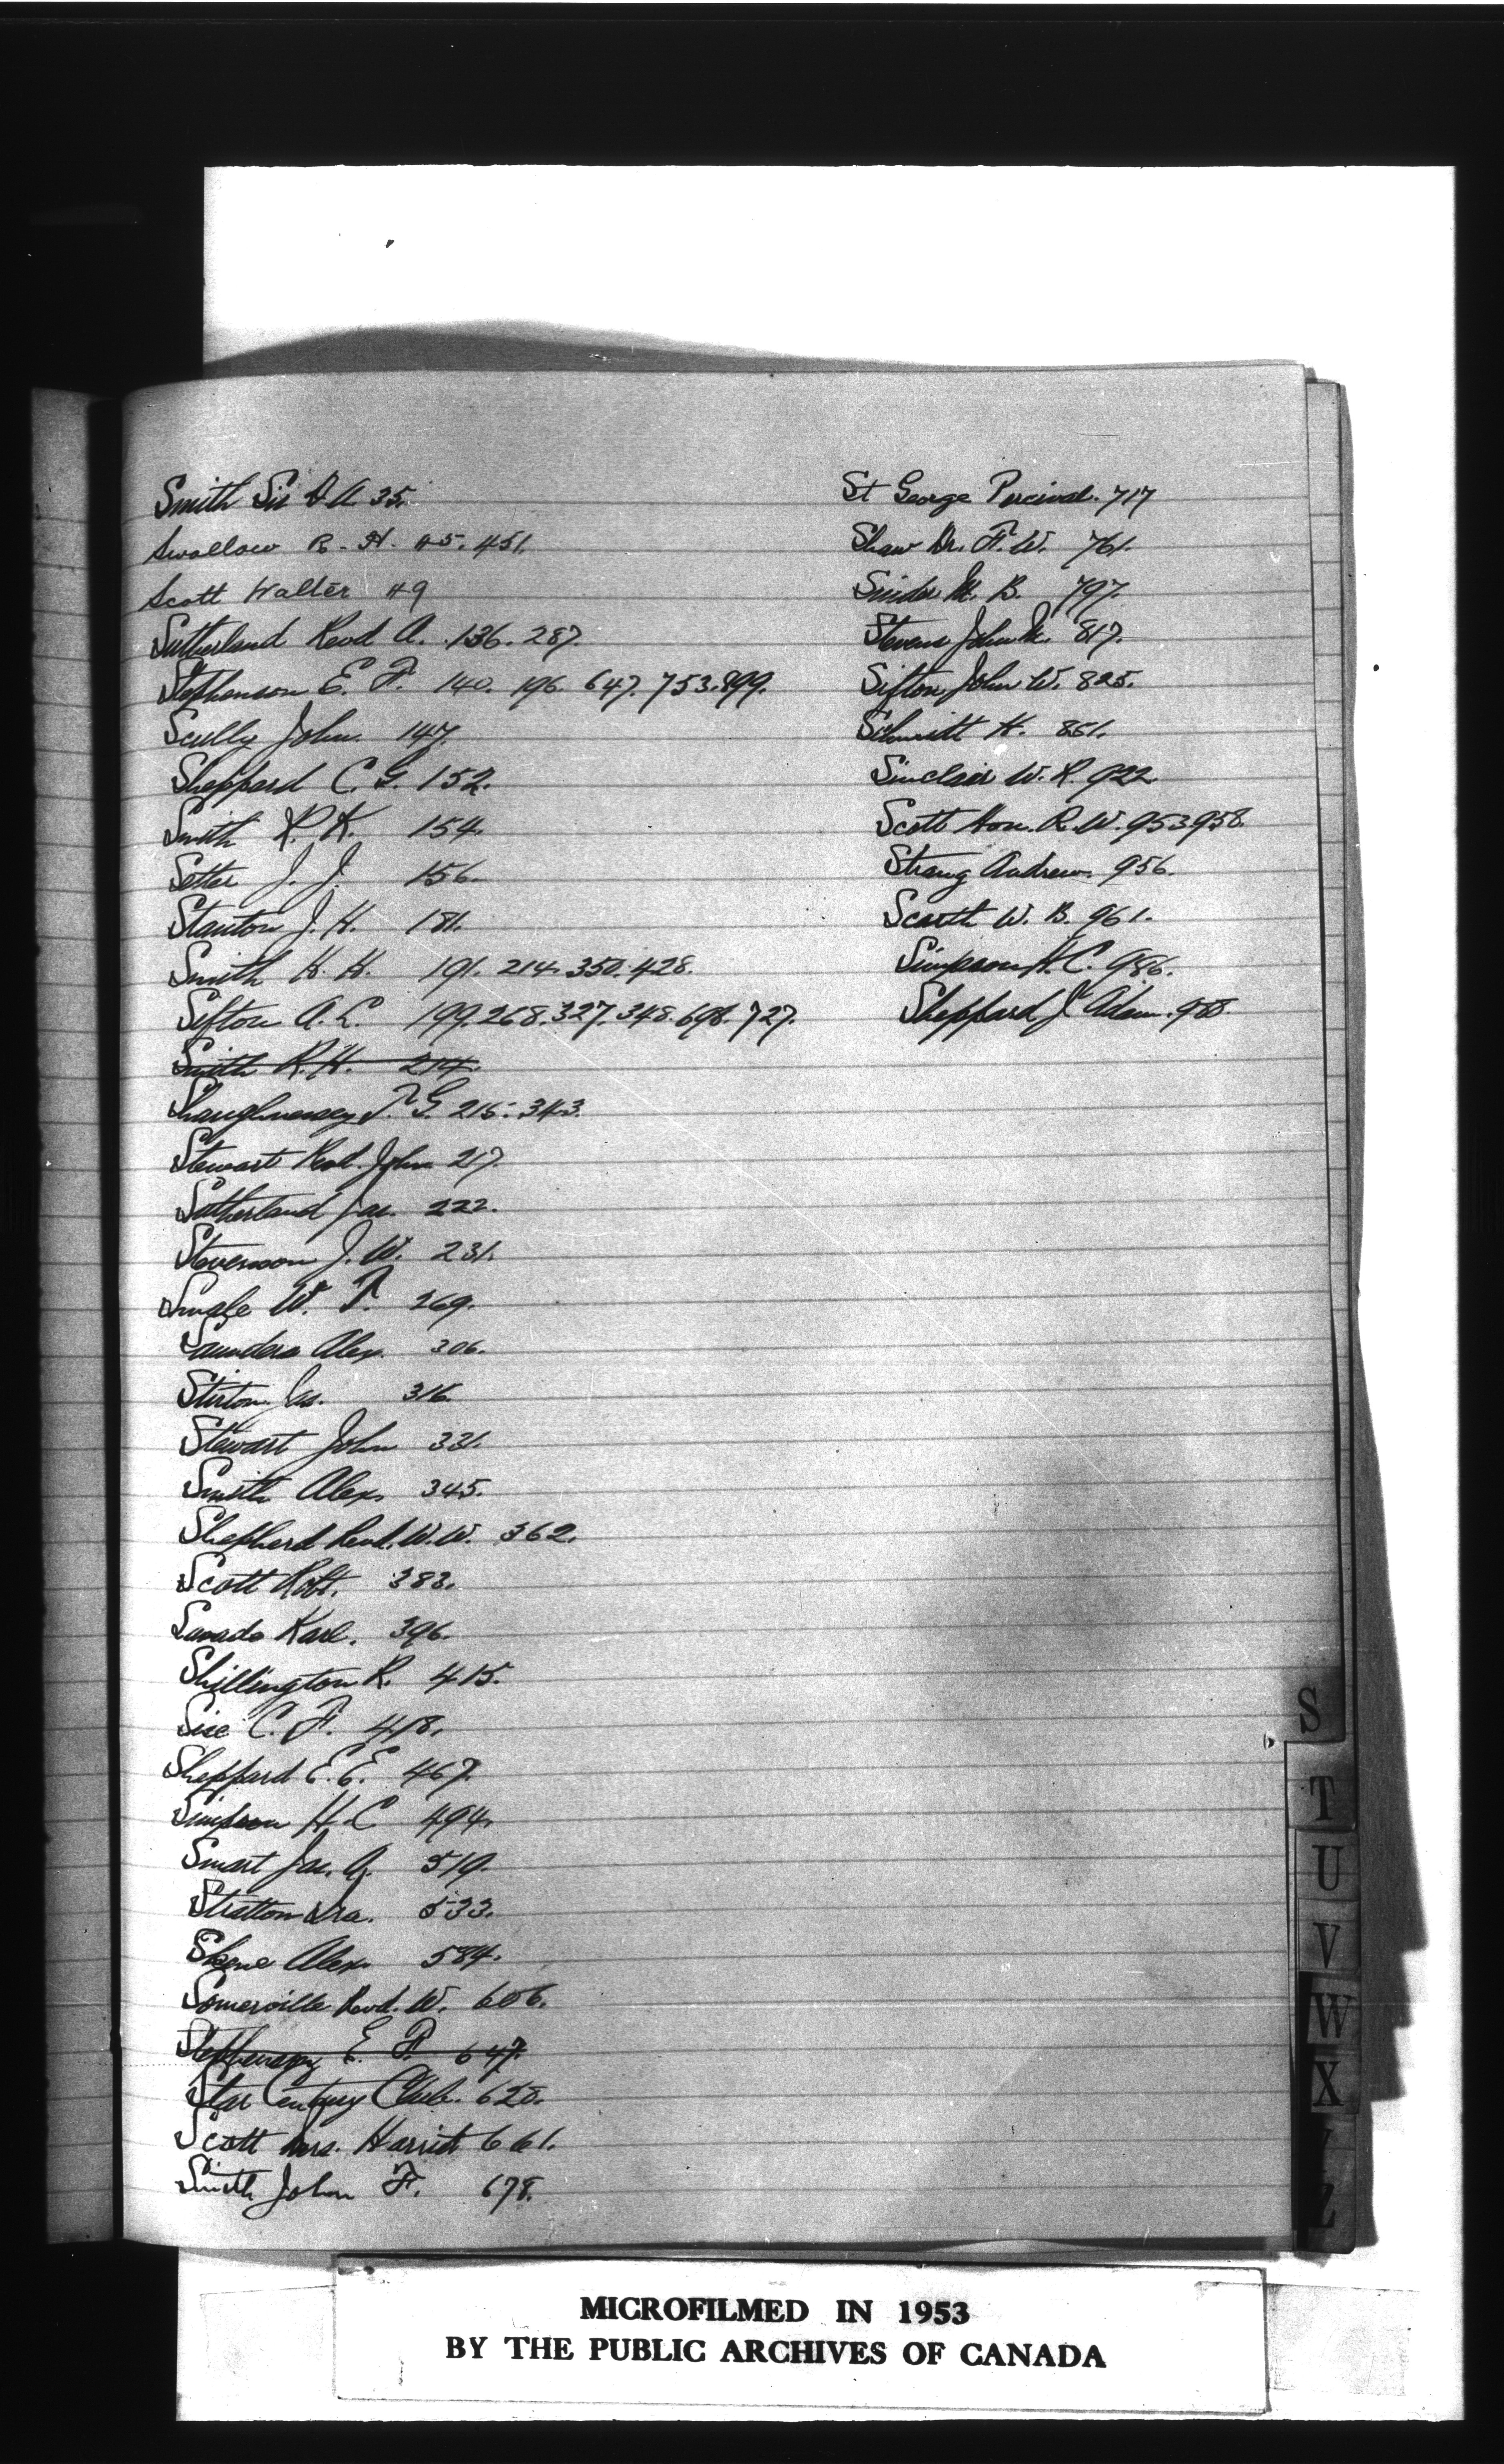 Smith Sir D A 35.
Swallow R. H. 45. 451.
Scott Walter 49
Sutherland Revd A. 136. 287.
Stephenson E. F. 140. 196. 647. 753. 899.
Scully John. 147.
Sheppard C. G. 152.
Smith R. K. 154.
Setter J. J. 156.
Stanton J. H. 181.
Smith H. H. 191. 214. 350. 428.
Sifton A. L. 199. 268. 327. 348. 698. 727.
Smith R. H. 214.
Shaughnessy T. G. 215. 343.
Stewart Revd. John 217.
Sutherland Jas. 222.
Stevenson J. W. 231.
Smale W. F. 269.
Saunders Alex. 306.
Stirton Jas. 316.
Stewart John 331.
Smith Alex. 345.
Shepherd Revd. W. W. 362.
Scott Robt. 383.
Karl. 396.
Shillington R. 415.
Sise C. F. 418.
Sheppard E. E. 467.
Simpson H. C 494.
Smart Jas. A. 519.
Stratton Ira. 533.
Skene Alex. 584.
Somerville Revd. W. 606.
Stephenson E. F. 647.
Star Century Club. 620.
Scott Mrs. Harriet 661.
Smith John F. 678.
St George Percival. 717
Shaw Dr. F. W. 761.
Snider M. B. 797.
Stevens John 817.
Sifton John W. 825.
Schmitt H. 861.
Sinclair W. R. 922
Scott Hon. R. W. 953 958.
Strang Andrew. 956.
Scarth W. B. 961.
Simpson H. C. 986.
Sheppard J. Adam. 988.
S
T
U
V
W
X
Y
Z
MICROFILMED IN 1953
BY THE PUBLIC ARCHIVES OF CANADA